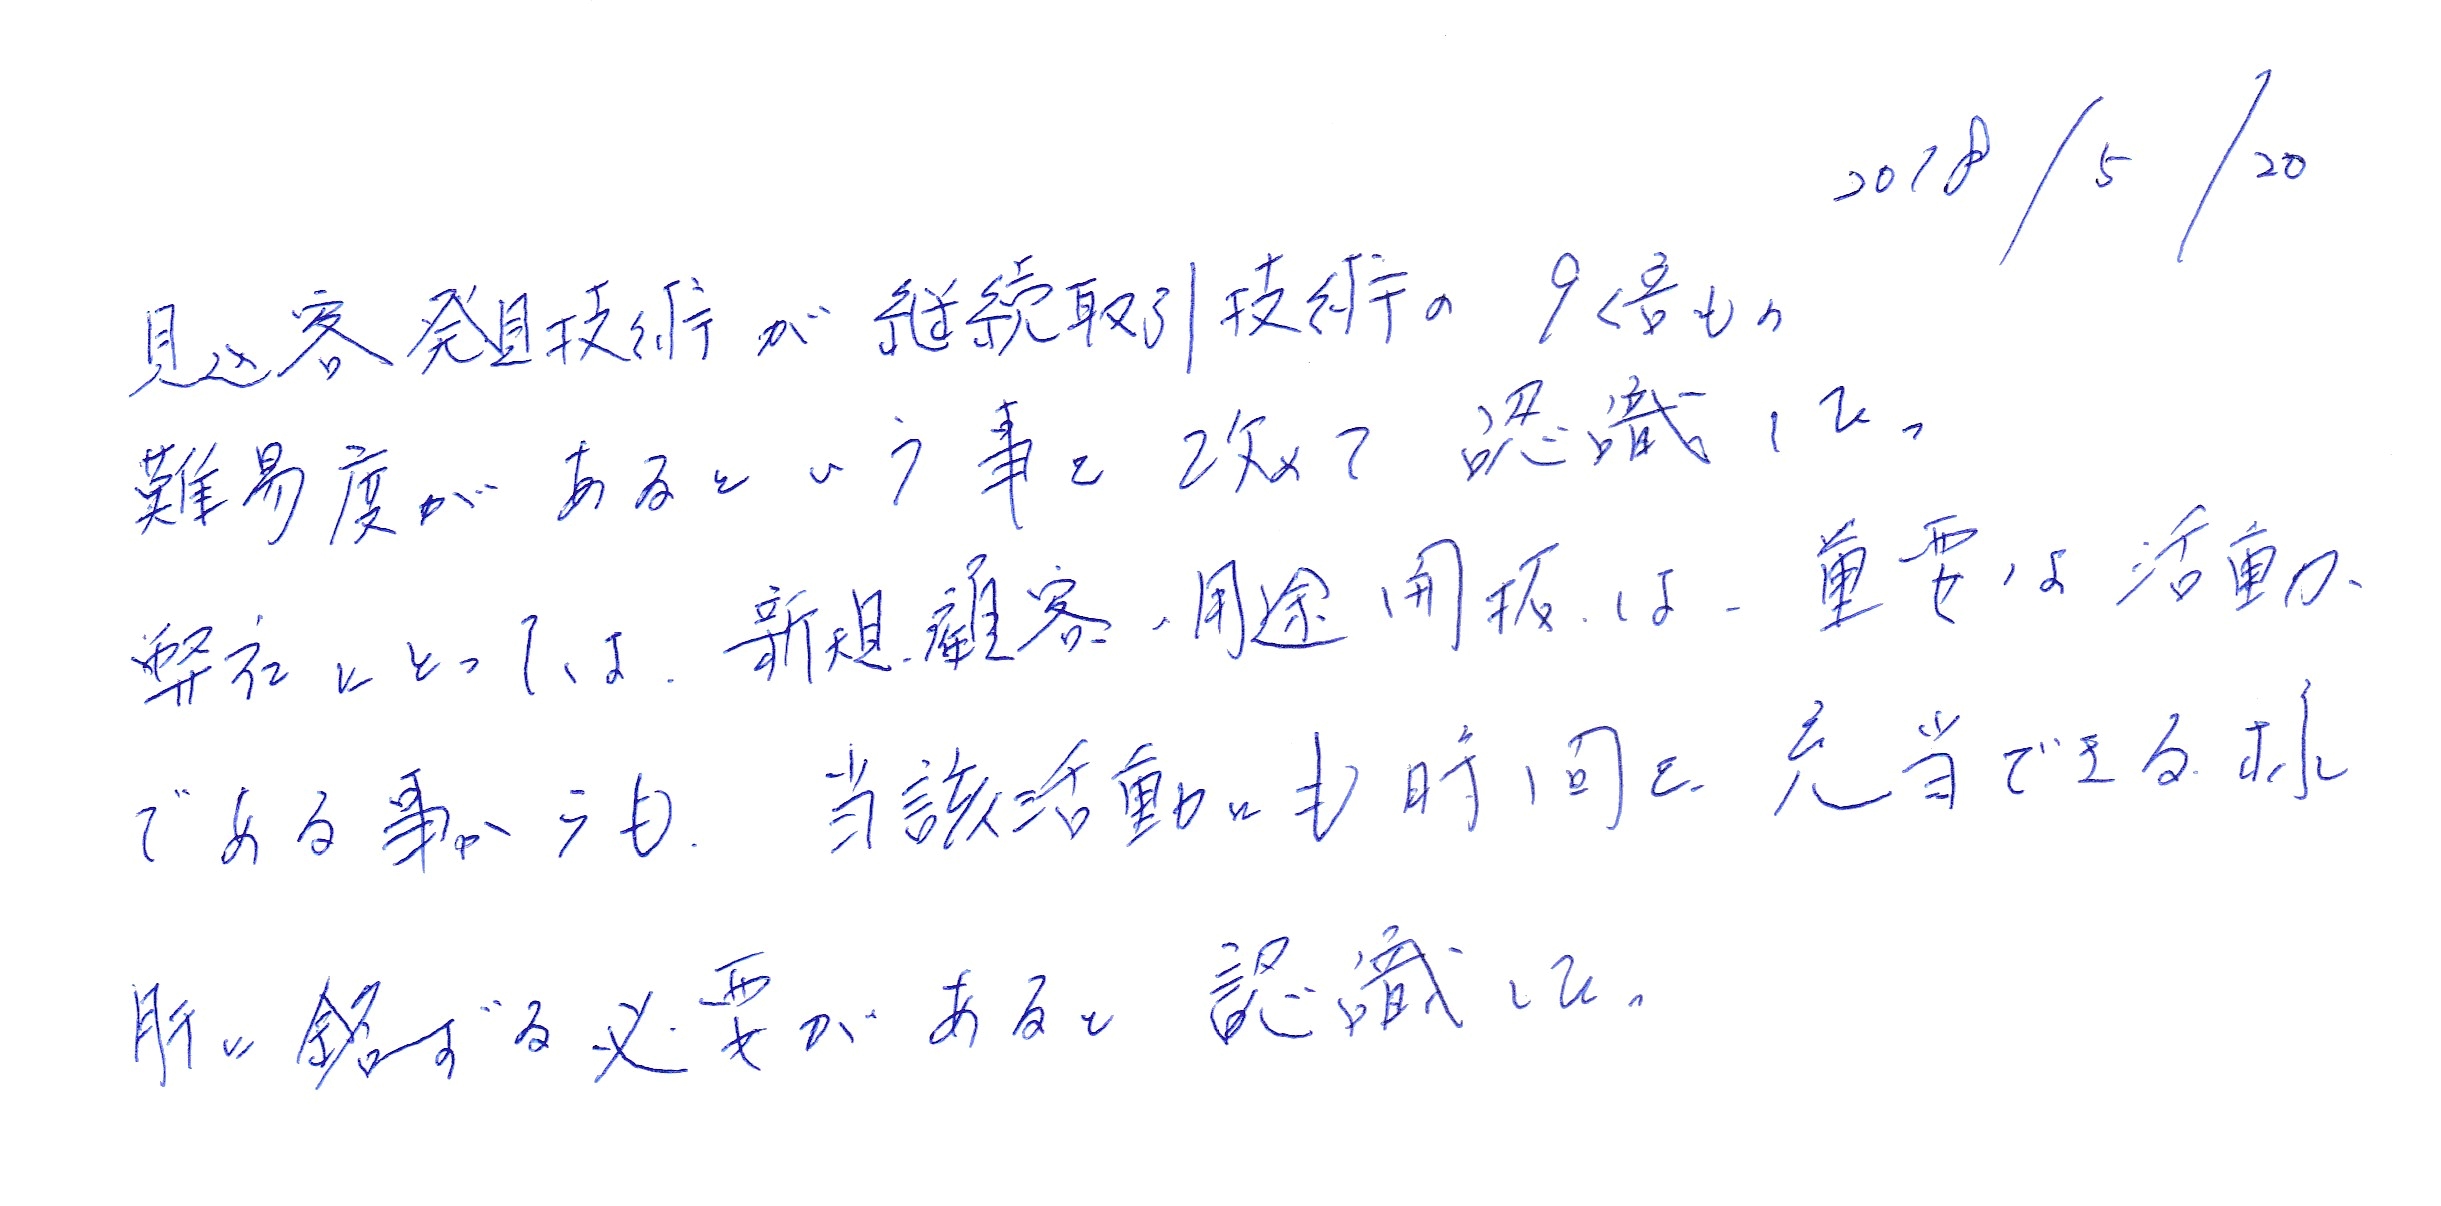 2018/5/20
見込客発見技術が継続取引技術の9倍もの
難易度があるという事を改めて認識した。
弊社にとっては、新規顧客、用途開拓は、重要な活動
である事からも、当該活動にも時間を充当できる様
肝に銘ずる必要があると認識した。